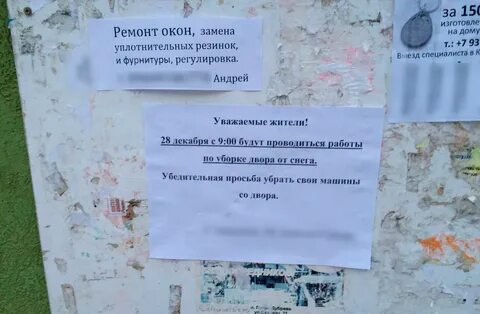 Ремонт окон, замена
уплотнительных резинок,
и фурнитуры, регулировка.
Андрей
за 150
изготовле
на дому
т.: +7 93
Выезд специалиста в К
Уважаемые жители!
28 декабря с 9:00 будут проводиться работы
по уборке двора от снега.
Убедительная просьба убрать свои машины
со двора.